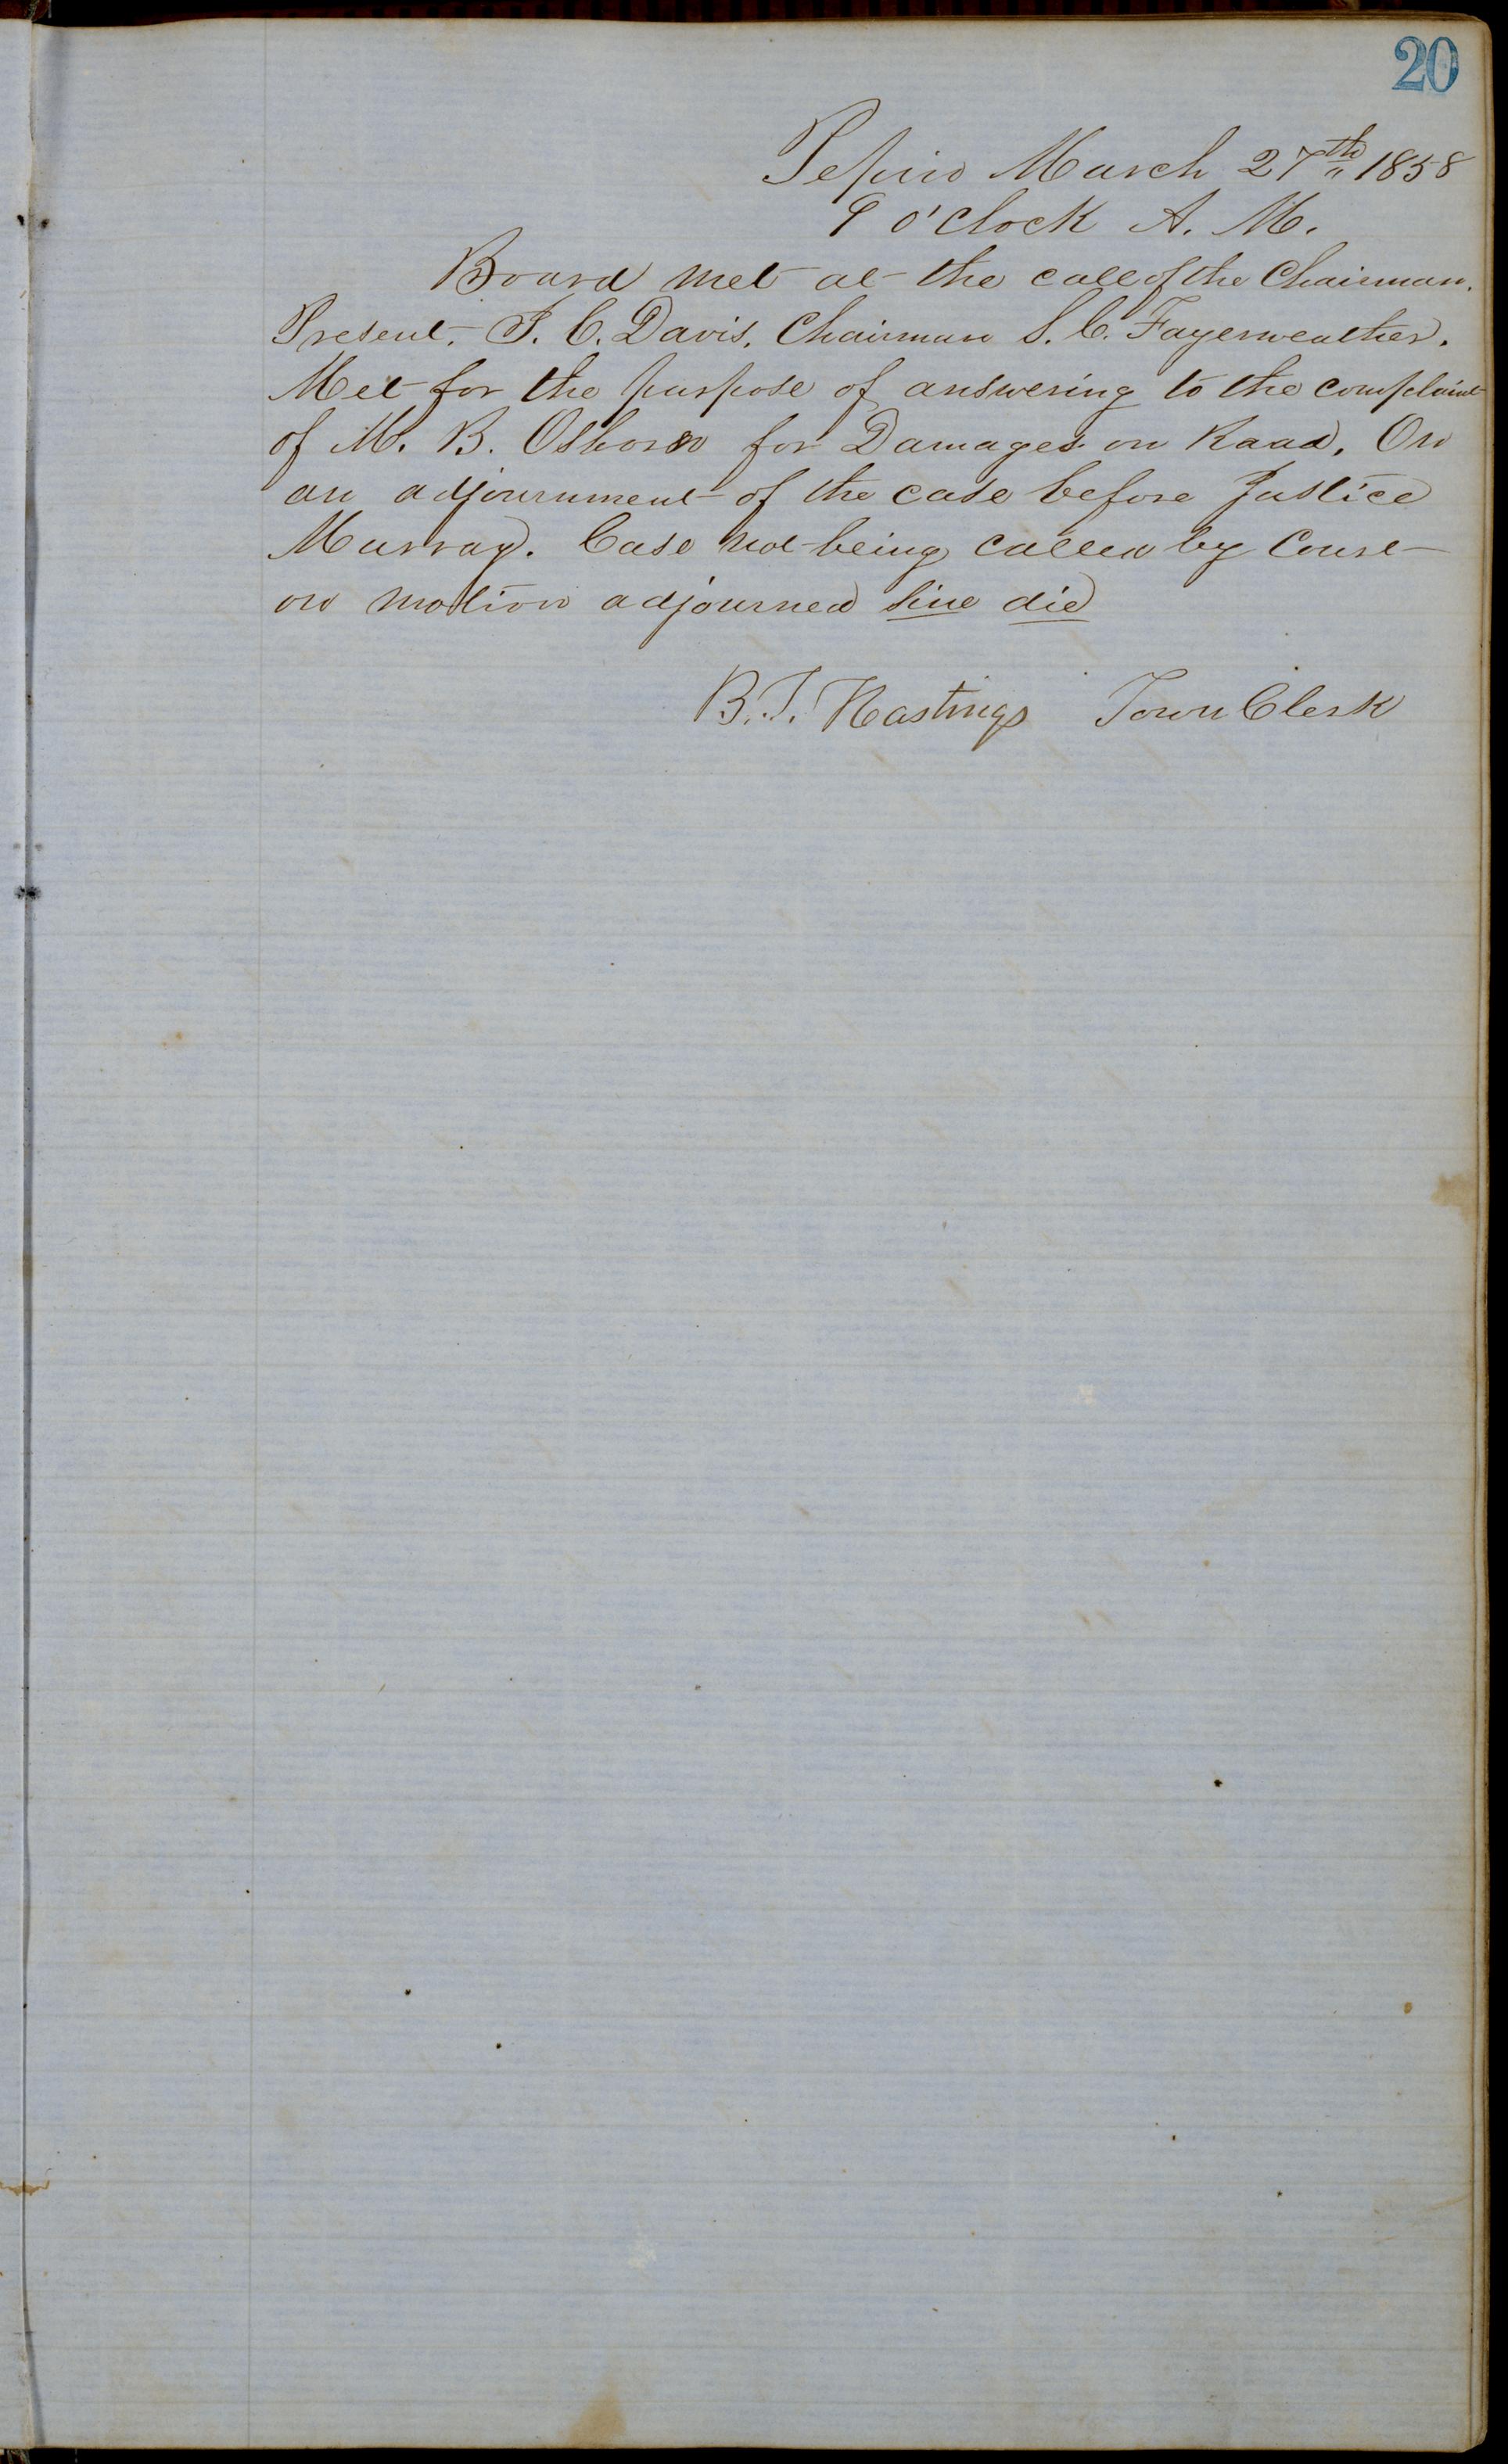 20
Pepin March 27th 1858
9 o'Clock A. M.
Board met at the call of the Chairman.
Present. I. C. Davis, Chairman S. C. Fayerweather.
Met for the purpose of answering to the complaint
of M. B. Osborn for Damages on Raad. On
an adjournment of the case before Justice
Murray. Case not being called by Court
on motion adjourned sine die
B. T. Hastings Town Clerk